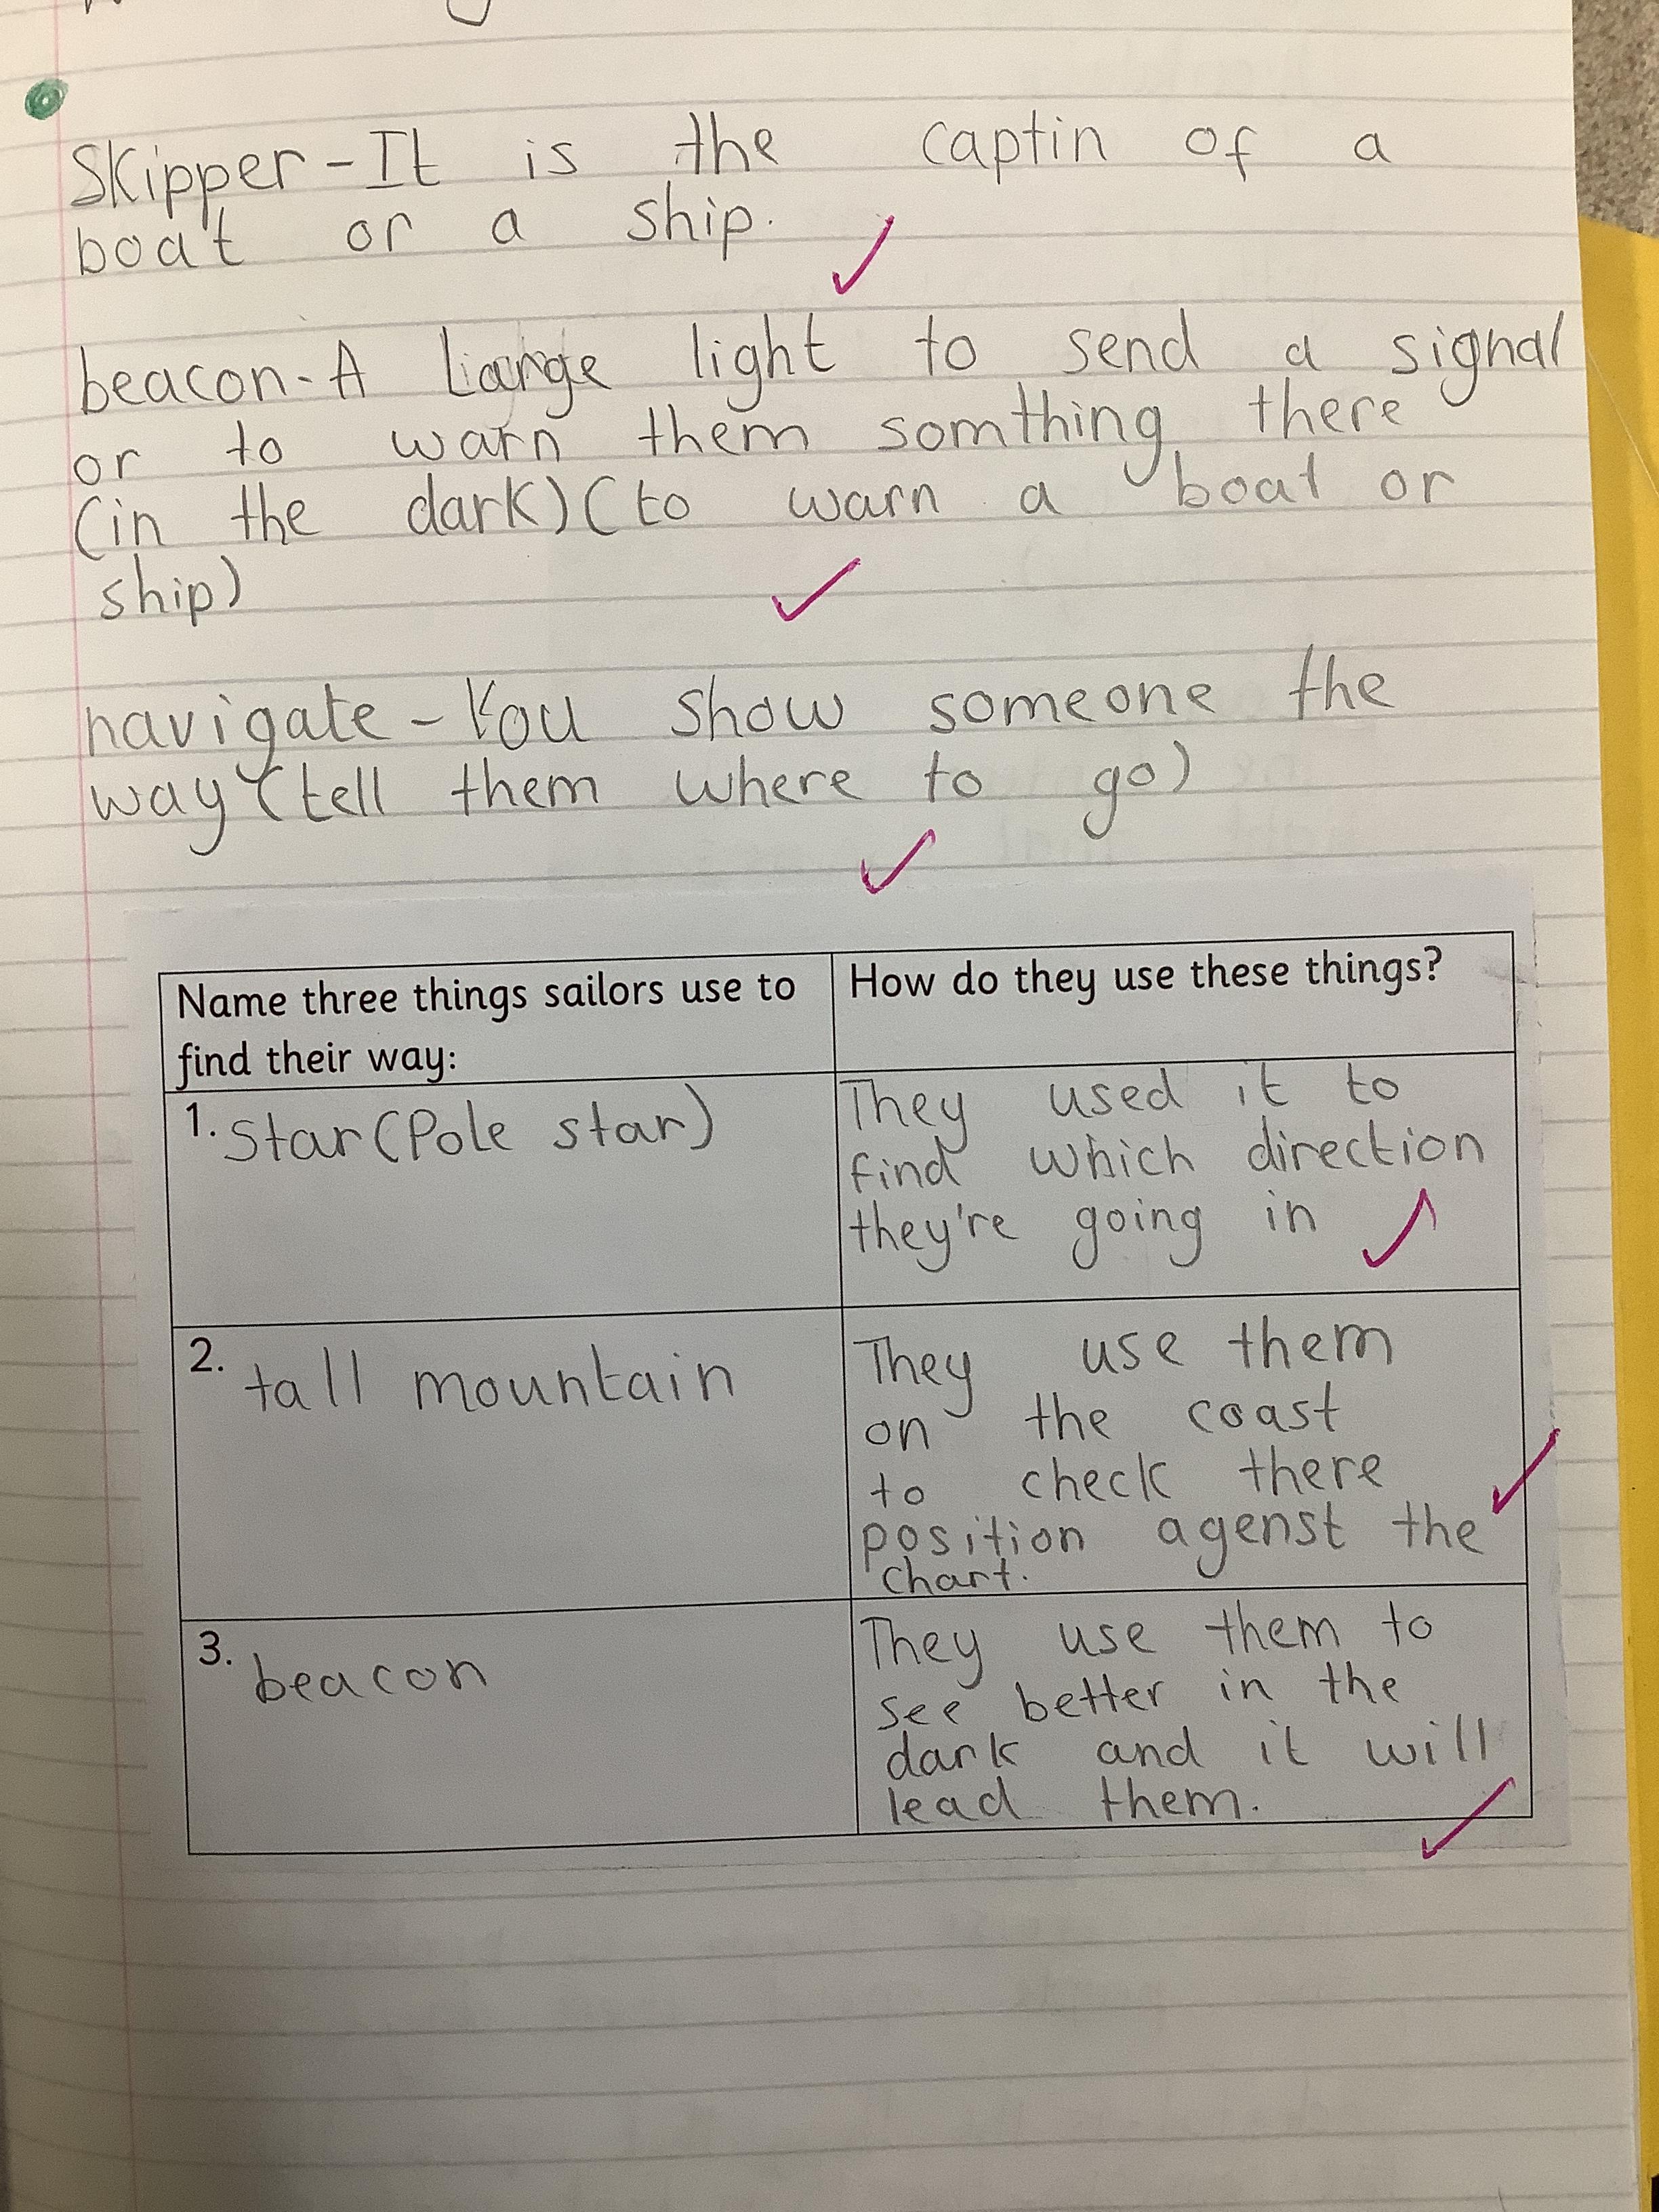 Skipper - It is the captin of a
boat or a ship.
beacon - A large light to send a signal
or to warn them somthing there
(in the dark) (to warn a boat or
ship)
navigate - You show someone the
way (tell them where to go)
Name three things sailors use to
find their way:
How do they use these things?
1. Star (Pole star)
They used it to
find which direction
they're going in
2. tall mountain
They use them
on the coast
to check there
position agenst the
chart.
3. beacon
They use them to
see better in the
dark and it will
lead them.